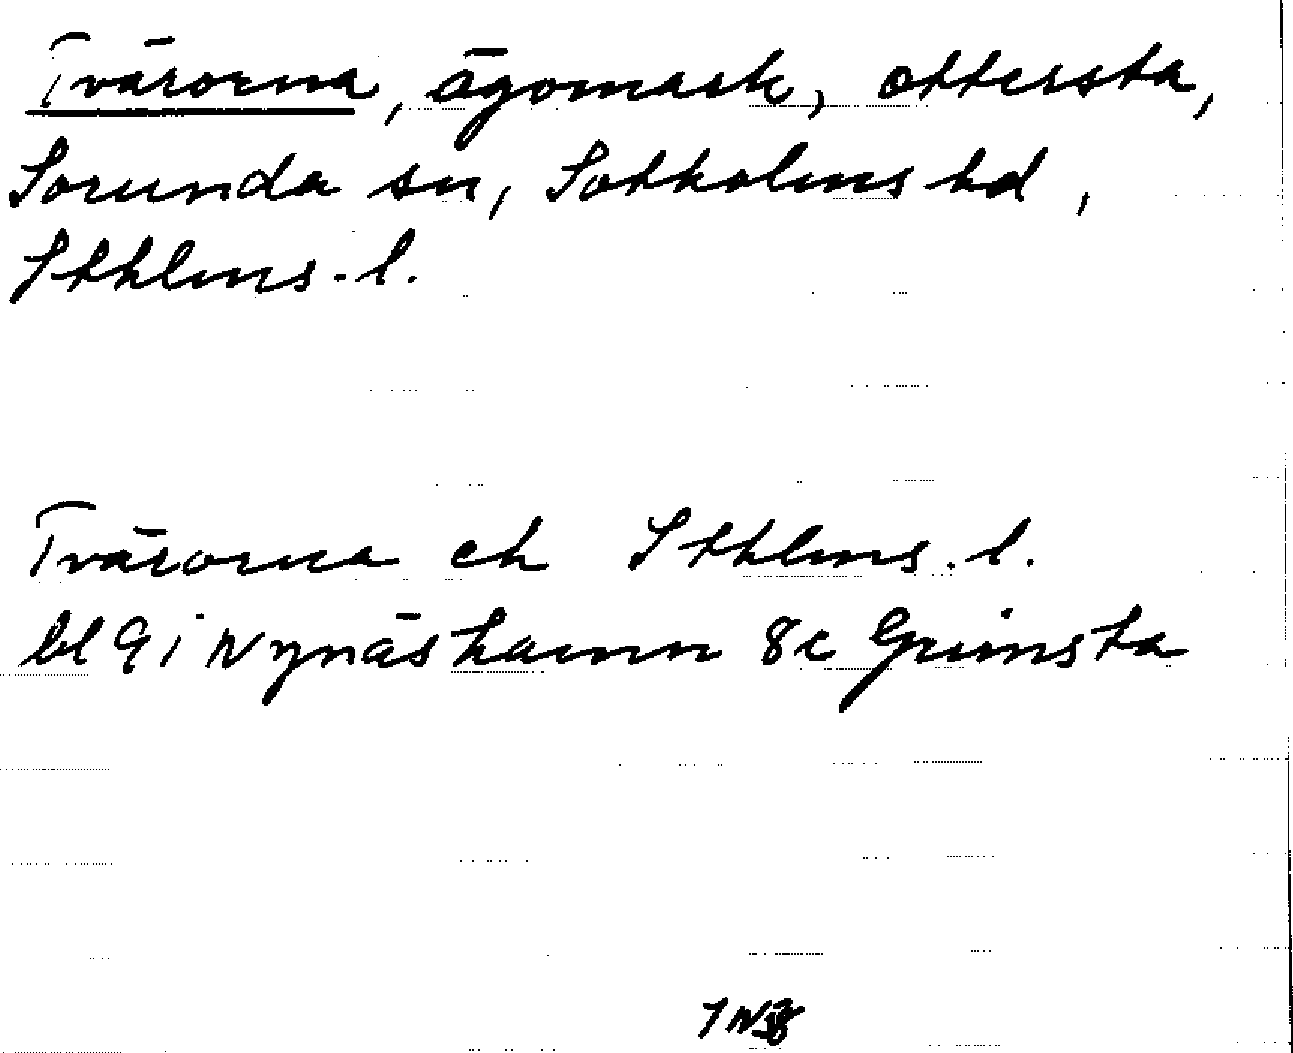 Tvärorna, ägomark, Ottersta,
Sorunda sn, Sotholms hd,
Sthlms. l.
Tvärorna ek Sthlms. l.
bl 9 i Nynäshamn 8c Grimsta